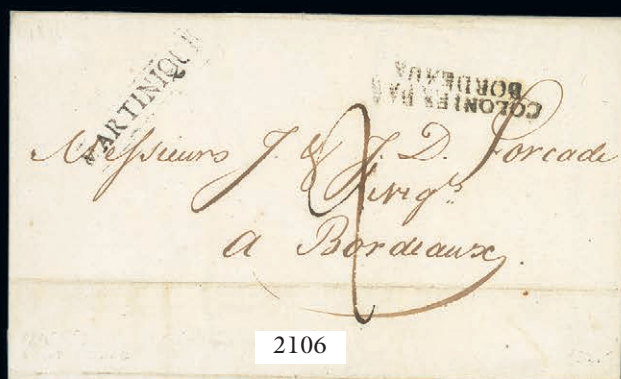 MARTINIQUE
COLONIES PAR
BORDEAUX
Messieurs J. & J. D. Forcade
a Bordeaux.
2106